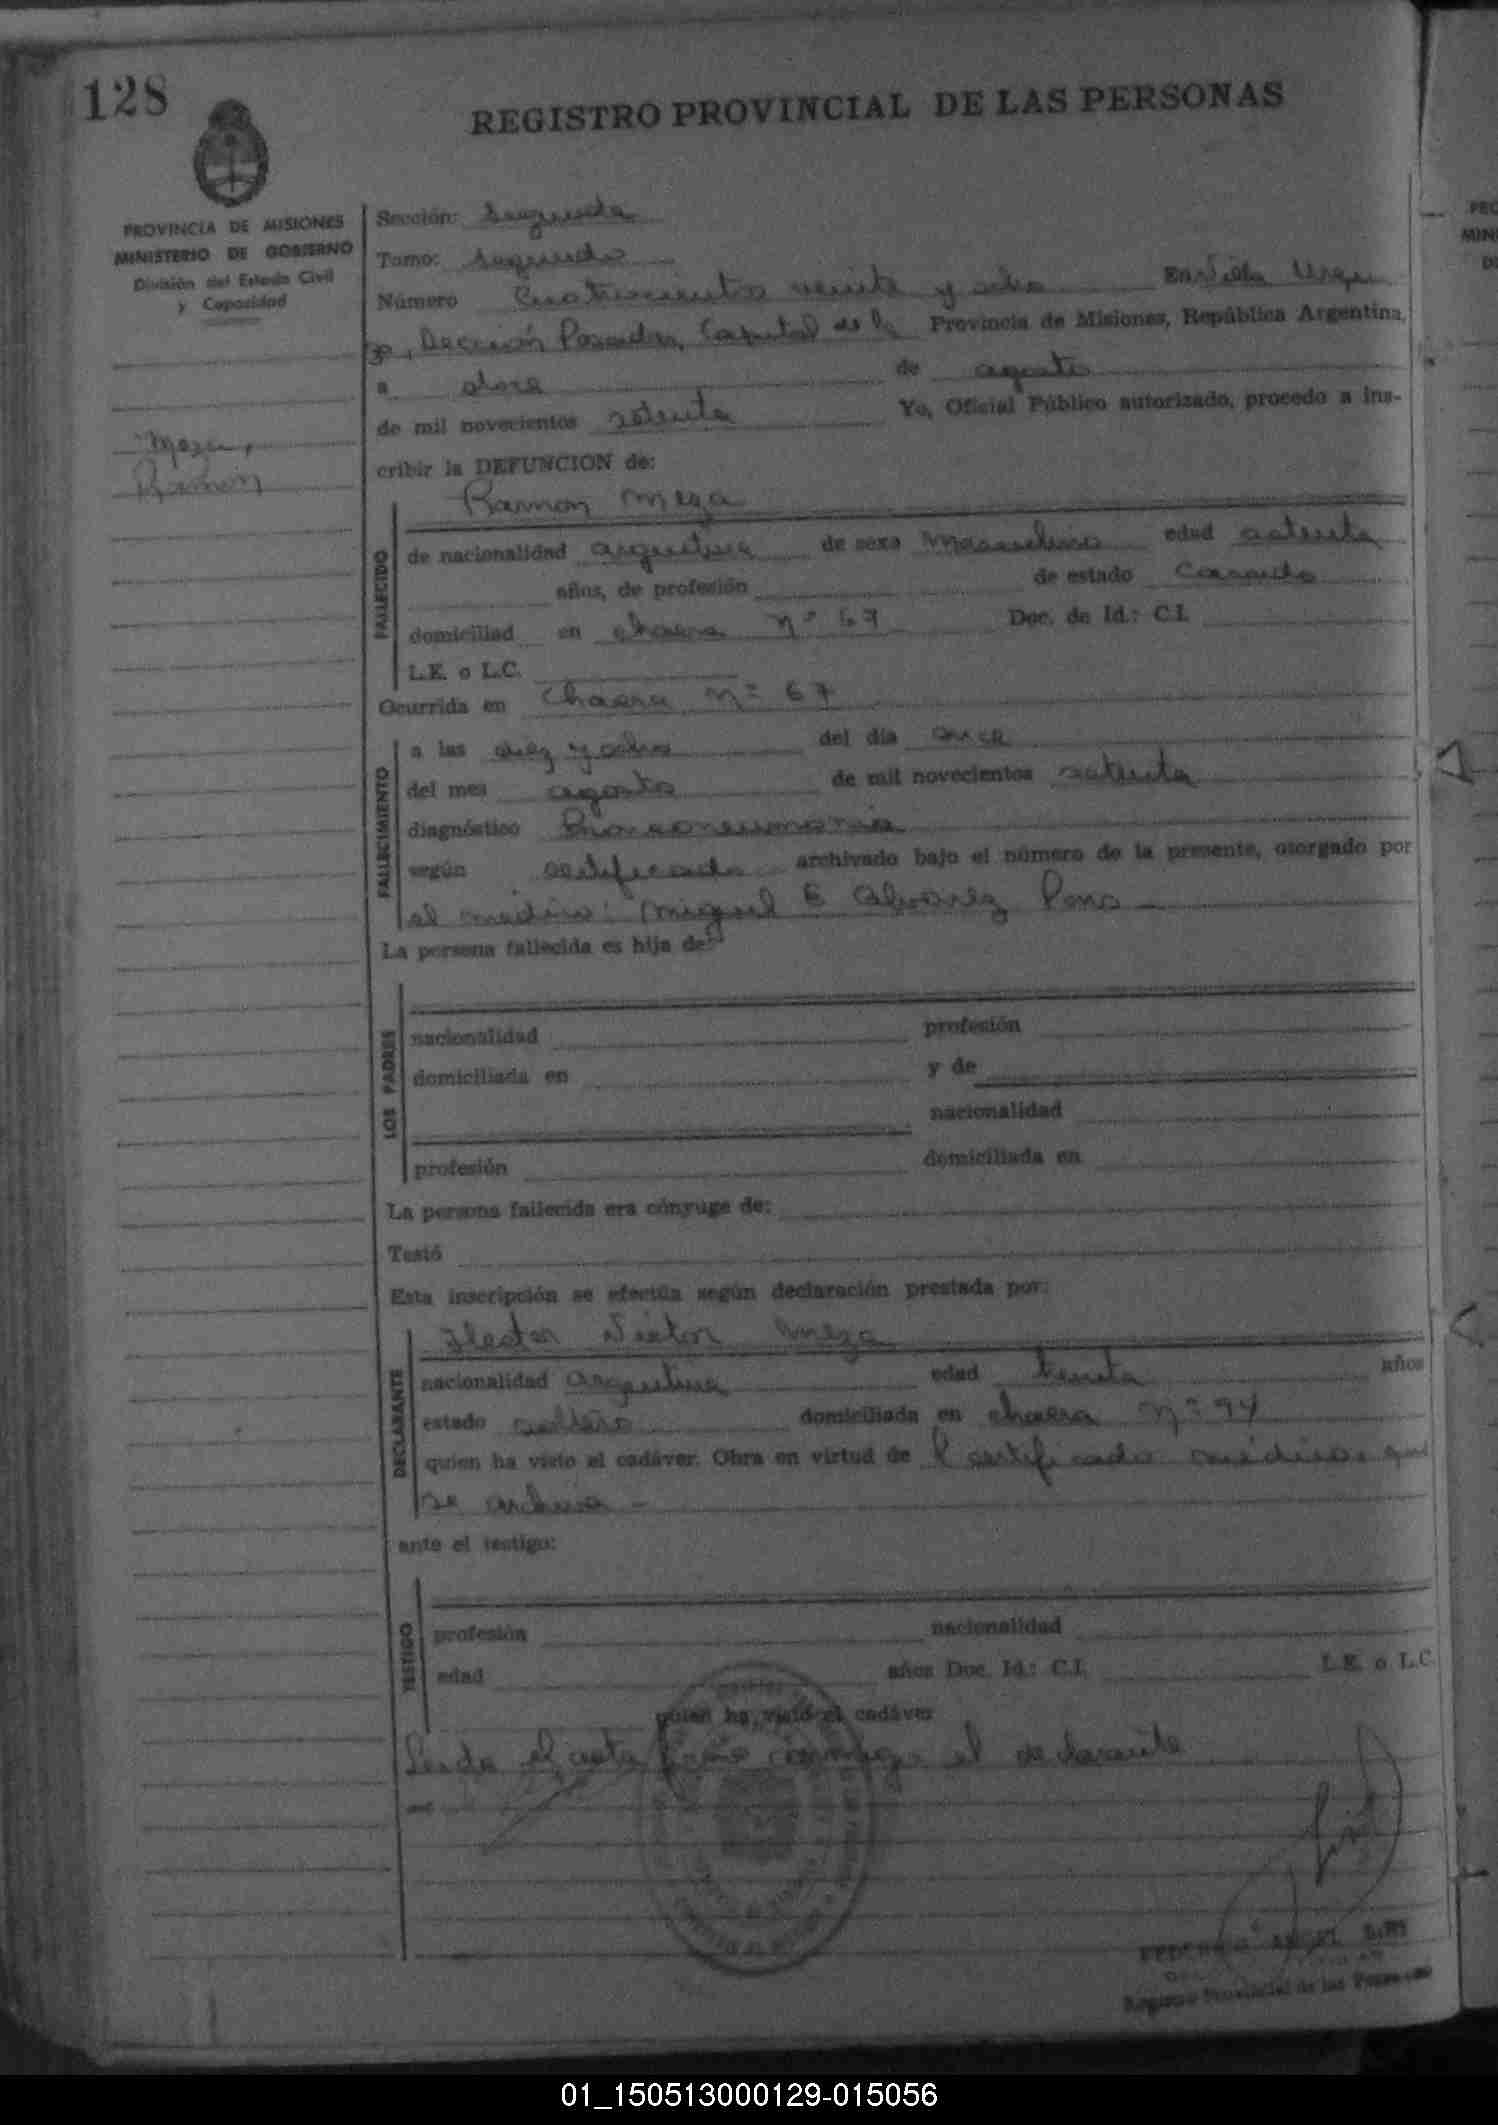 128
REGISTRO PROVINCIAL DE LAS PERSONAS
PROVINCIA DE MISIONES
MINISTERIO DE GOBIERNO
División del Estado Civil
y Capacidad
Meza,
Ramon
Sección: Segunda
Tomo: Segundo
Número Cuatrocientos veinte y ocho En Villa Urqui
za, Sección Posadas, Capital de la Provincia de Misiones, República Argentina,
a doce de agosto
de mil novecientos setenta Yo, Oficial Público autorizado, procedo a ins-
cribir la DEFUNCION de:
Ramon Meza
FALLECIDO
de nacionalidad argentina de sexo Masculino edad setenta
años, de profesión de estado Casado
domiciliad en chacra Nº 67 Doc. de Id.: C.I.
L.E. o L.C.
Ocurrida en Chacra Nº 67
FALLECIMIENTO
a las diez y ocho del día once
del mes agosto de mil novecientos setenta
diagnóstico Bronconeumonia
según certificado archivado bajo el número de la presente, otorgado por
el médico: Miguel E Alvarez Pons
La persona fallecida es hija de:
LOS PADRES
nacionalidad profesión
domiciliada en y de
nacionalidad
profesión domiciliada en
La persona fallecida era cónyuge de:
Testó
Esta inscripción se efectúa según declaración prestada por:
Hector Victor Meza
DECLARANTE
nacionalidad Argentina edad treinta años
estado soltero domiciliada en chacra Nº 94
quien ha visto el cadáver. Obra en virtud de certificado médico que
se archiva -
ante el testigo:
TESTIGO
profesión nacionalidad
edad años Doc. Id.: C.I. L.E. o L.C.
quien ha visto el cadáver
Leida el acta firmó conmigo el declarante
FEDERICO ANGEL
Registro Provincial de las Personas
01_150513000129-015056